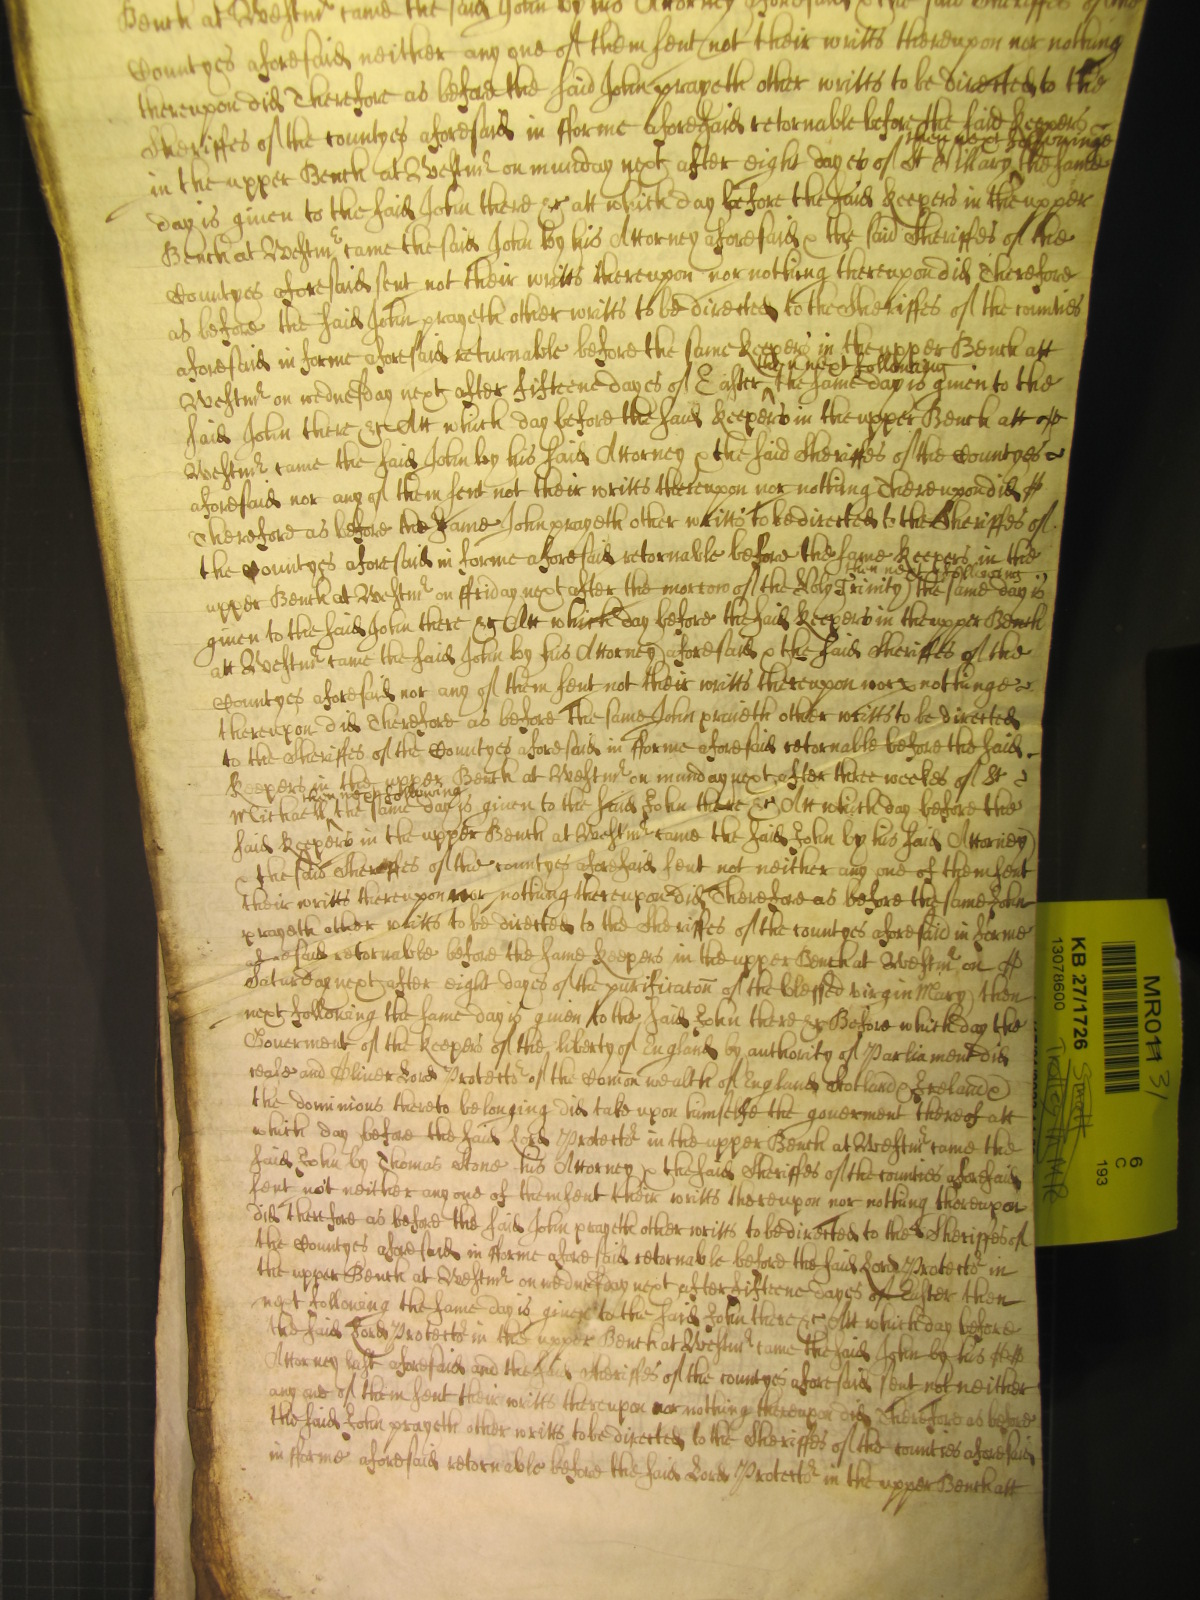 Bench at Westmr came the said John by his Attorney aforesaid & the said Sheriffes of the
Countyes aforesaid neither any one of them sent not their writts thereupon nor nothing
thereupon did Therefore as before the said John prayeth other writts to be directed to the
Sheriffes of the countyes aforesaid in fforme aforesaid retornable before the said Keepers
then next followinge
in the upper Bench at Westmr on munday next after eight dayes of St Hillary the same
day is given to the said John there &c att which day before the said Keepers in the upper
Bench at Westmr came the said John by his Attorney aforesaid & the said Sheriffes of the
Countyes aforesaid sent not their writts thereupon nor nothing thereupon did Therefore
as before the said John prayeth other writts to be directed to the Sheriffes of the counties
aforesaid in forme aforesaid returnable before the same Keepers in the upper Bench att
then next following
Westmr on wednesday next after fifteene dayes of Easter the same day is given to the
said John there &c Att which day before the said Keepers in the upper Bench att
Westmr came the said John by his said Attorney & the said Sheriffes of the Countyes
aforesaid nor any of them sent not their writts thereupon nor nothing Thereupon did
Therefore as before the same John prayeth other writts to be directed to the Sheriffes of
the Countyes aforesaid in forme aforesaid retornable before the same Keepers in the
then next following
upper Bench at Westmr on ffriday next after the morrow of the Holy Trinity the same day is
given to the said John there &c Att which day before the said Keepers in the upper Bench
att Westmr came the said John by his Attorney aforesaid & the said Sheriffes of the
Countyes aforesaid nor any of them sent not their writts thereupon nor nothinge
thereupon did Therefore as before the same John praieth other writts to be directed
to the Sheriffes of the Countyes aforesaid in fforme aforesaid retornable before the said
Keepers in the upper Bench at Westmr on munday next after three weekes of St
then next following
Michaell the same day is given to the said John there &c Att which day before the
said Keepers in the upper Bench at Westmr came the said John by his said Attorney
& the said Sheriffes of the countyes aforesaid sent not neither any one of them sent
their writts thereupon nor nothing thereupon did Therefore as before the same John
prayeth other writts to be directed to the Sheriffes of the countyes aforesaid in forme
aforesaid retornable before the same Keepers in the upper Bench at Westmr on
Saturday next after eight dayes of the purificacon of the blessed virgin Mary then
next following the same day is given to the said John there &c Before which day the
Goverment of the Keepers of the liberty of England by authority of Parliament did
cease and Oliver Lord Protector of the Comon wealth of England Scotland & Ireland &
the dominions thereto belonging did take upon himselfe the goverment thereof att
which day before the said Lord Protector in the upper Bench at Westmr came the
said John by Thomas Stone his Attorney & the said Sheriffes of the counties aforesaid
sent not neither any one of them sent their writts thereupon nor nothing thereupon
did therefore as before the said John prayeth other writts to be directed to the Sheriffes of
the Countyes aforesaid in fforme aforesaid retornable before the said Lord Protector in
the upper Bench at Westmr on wednesday next after fifteene dayes of Easter then
next following the same day is given to the said John there &c Att which day before
the said Lord Protector in the upper Bench at Westmr came the said John by his
Attorney last aforesaid and the said Sheriffes of the countyes aforesaid sent not neither
any one of them sent their writts thereupon nor nothing thereupon did Therefore as before
the said John prayeth other writts to be directed to the Sheriffes of the counties aforesaid
in fforme aforesaid retornable before the said Lord Protector in the upper Bench att
MR011 3/
KB 27/1726
13078600
6
C
193